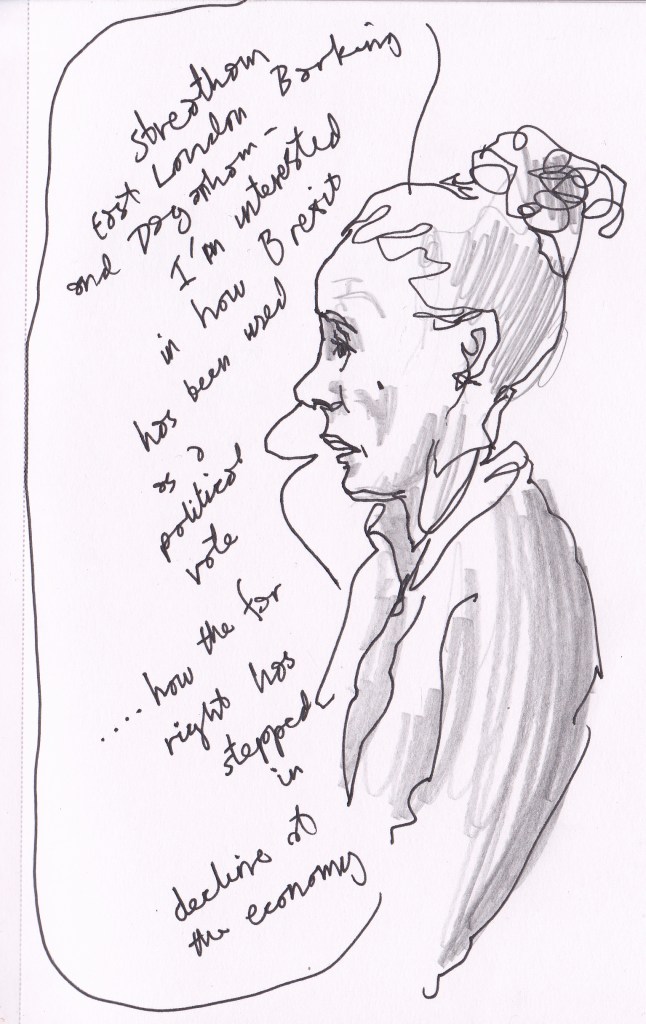 streatham
East London Barking
and Dagenham -
I'm interested
in how Brexit
has been used
as a
political
vote
.... how the far
right has
stepped
in
decline of
the economy